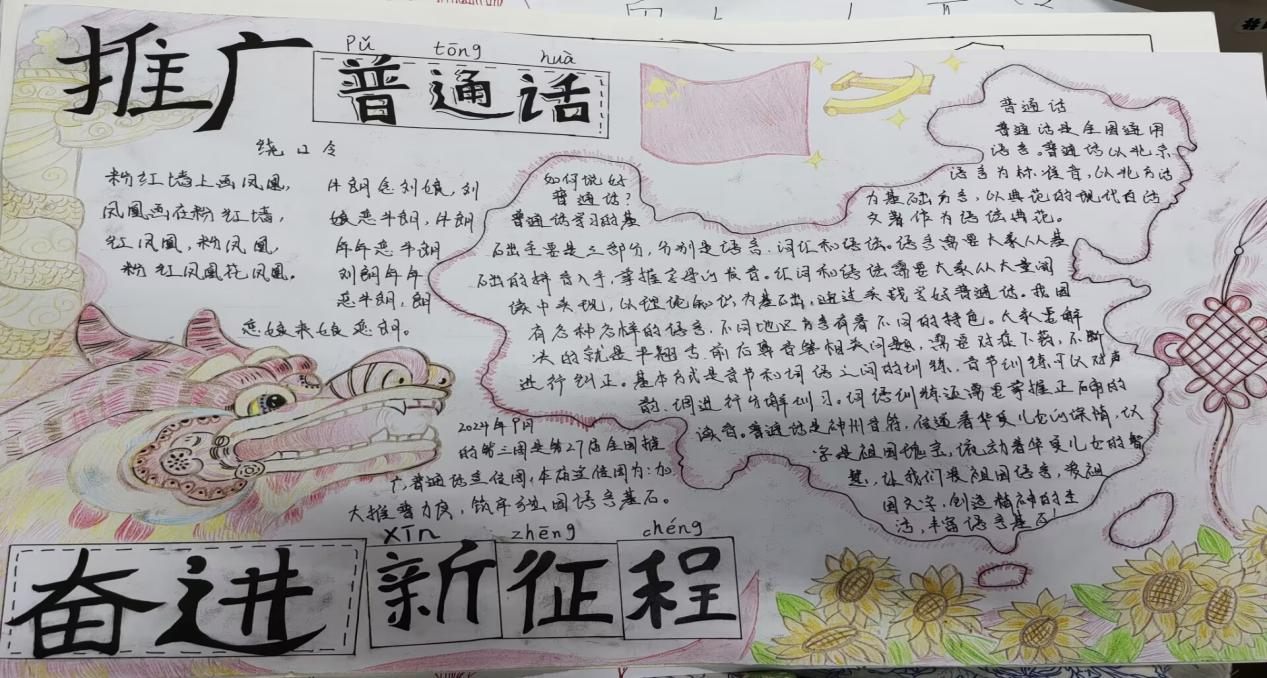 pǔ tōng huà
推广普通话
绕口令
粉红墙上画凤凰，
凤凰画在粉红墙，
红凤凰，粉凤凰，
粉红凤凰花凤凰。
牛朗恋刘娘，刘
娘恋牛朗，牛朗
年年恋牛朗
刘朗年年
恋牛朗，朗
恋娘来娘恋朗。
如何说好
普通话？
普通话学习的基
础主要是三部分，分别是语音、词汇和语法。语音需要大家从基
础的拼音入手，掌握字母的发音。汇词和语法需要大家从大量阅
读中实现，以理论知识为基础，通过实践学好普通话。我国
有各种各样的语言，不同地区方言有着不同的特色。大家要解
决的就是平翘舌、前后鼻音等相关问题，需要对症下药，不断
进行纠正。基本方式是音节和词语之间的训练，音节训练可以对声
韵、调进行分解训习。词语训练还需要掌握正确的
读音。普通话是神州音符，传递着华夏儿女的深情，汉
字是祖国瑰宝，流动着华夏儿女的智
慧，让我们爱祖国语言，爱祖
国文字，创造精神的生
活，丰富语言基石！
普通话
普通话是全国通用
语言。普通话以北京
语言为标准音，以北方话
为基础方言，以典范的现代白话
文著作为语法典范。
2024年9月
的第三周是第27届全国推
广普通话宣传周，本届宣传周为：加
大推普力度，筑牢强国语言基石。
xīn zhēng chéng
奋进新征程